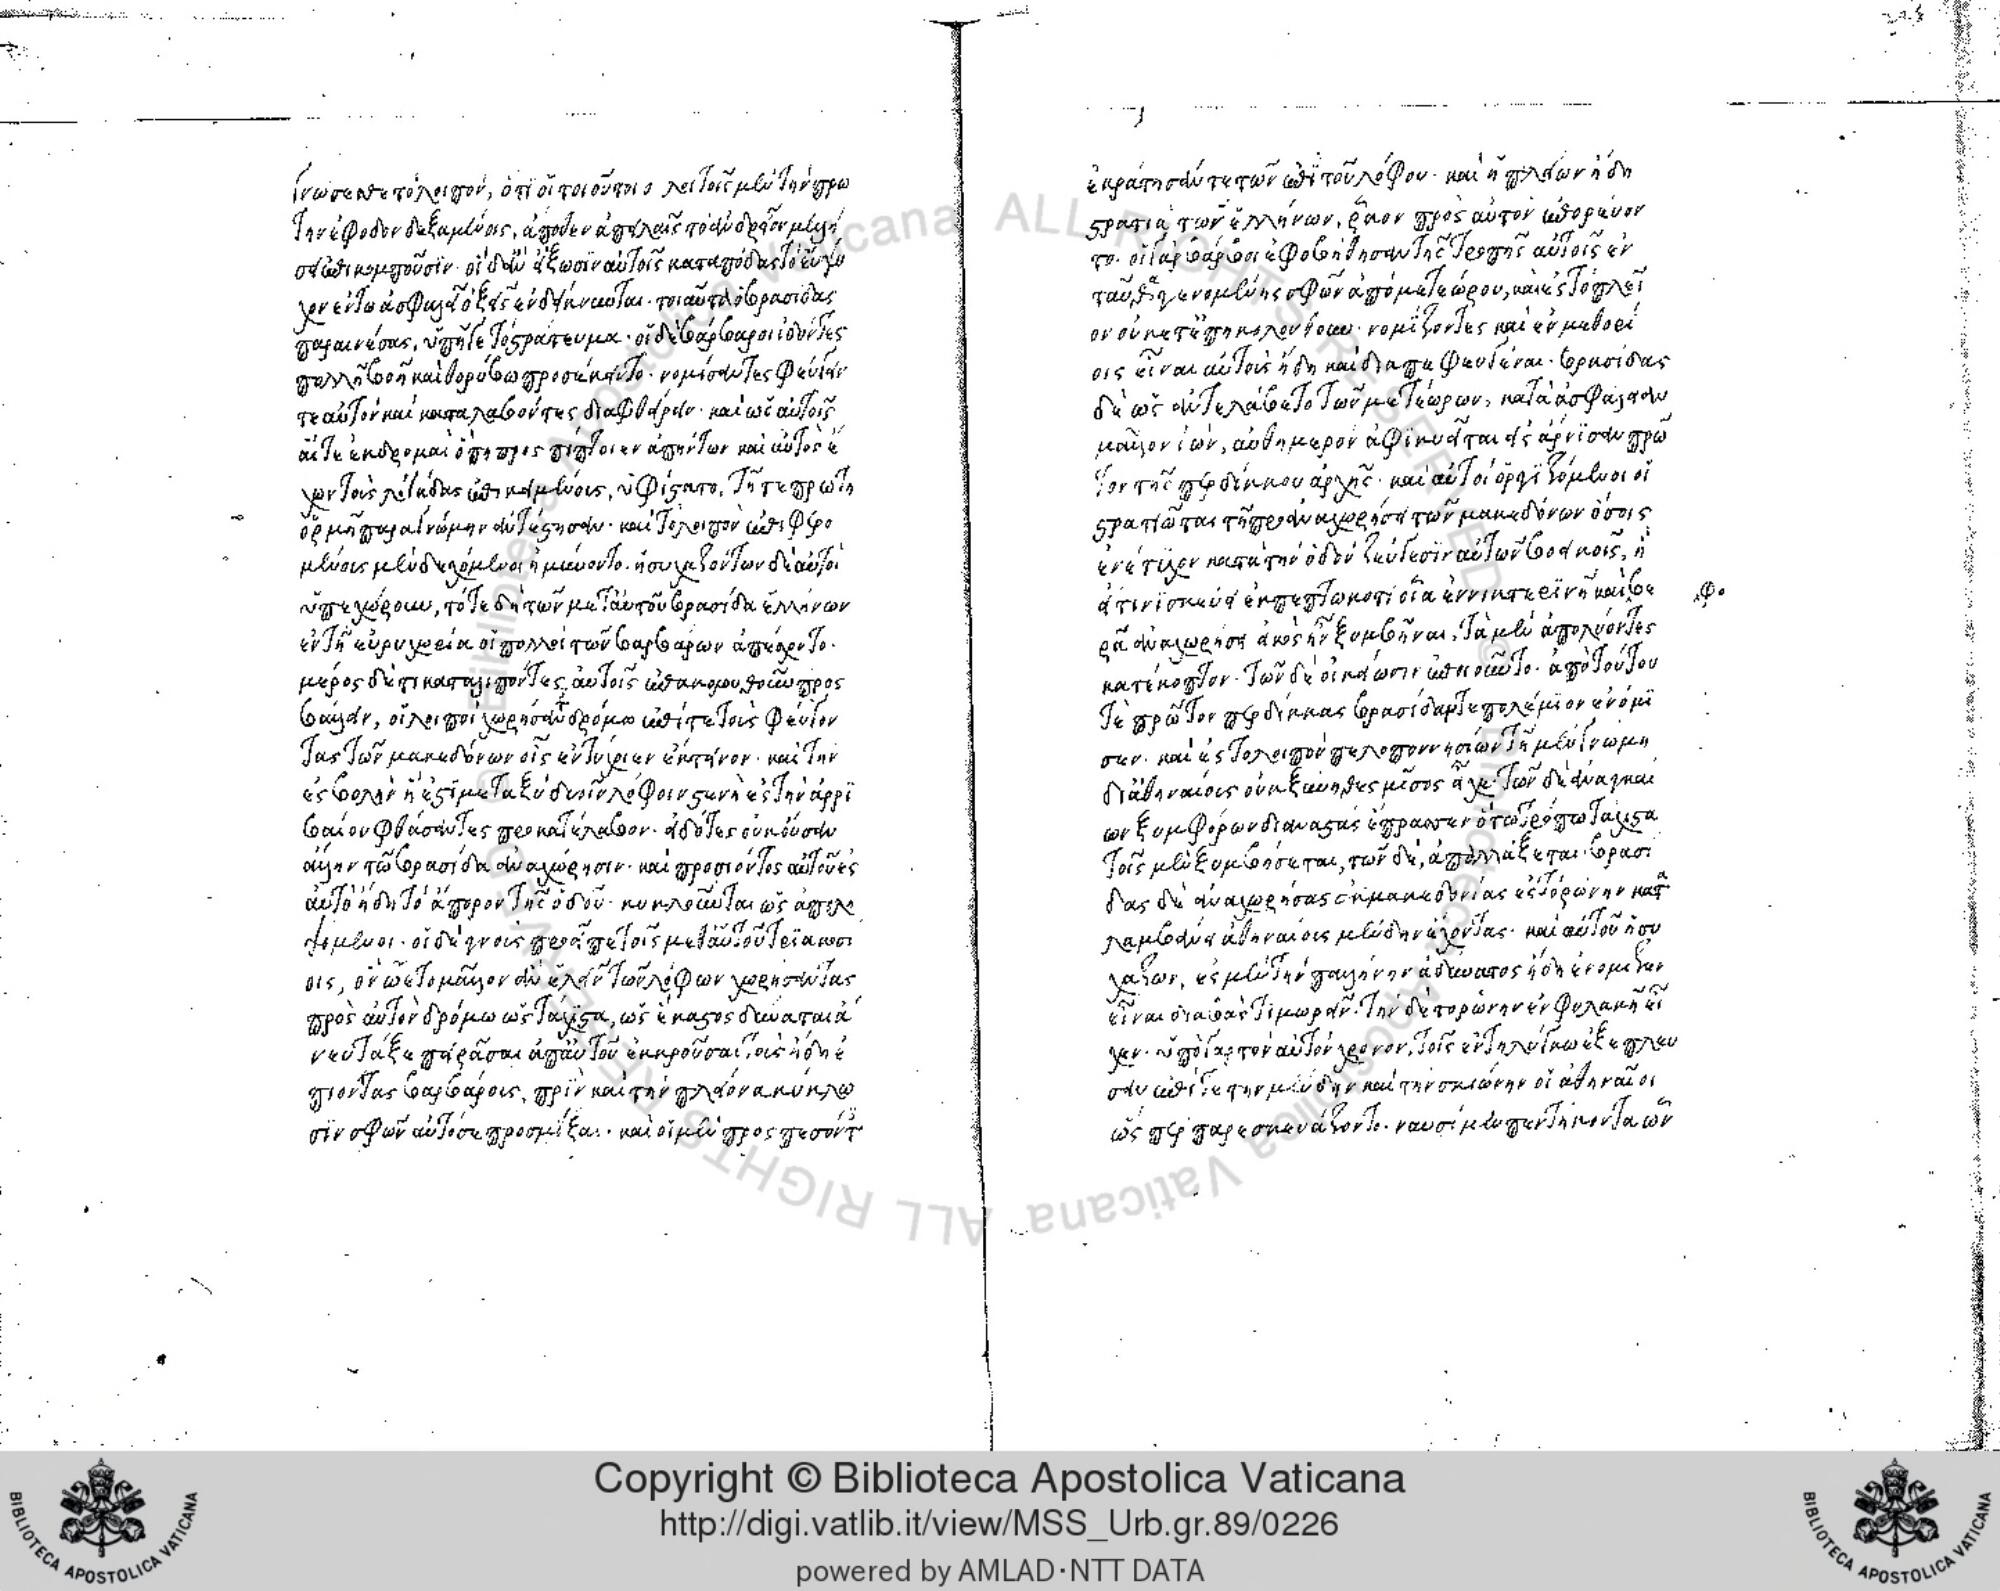 γνώσεσθε τὸ λοιπὸν, ὅτι οἱ τοιοῦτοι ὄχλοι τοῖς μὲν τὴν πρώ
την ἔφοδον δεξαμένοις, ἄποθεν ἀπειλαῖς τὸ ἀνδρεῖον μελλή
σει ἐπικομποῦσιν· οἳ δ' ἂν εἴξωσιν αὐτοῖς κατὰ πόδας τὸ εὔψυ
χον ἐν τῶ ἀσφαλεῖ ὀξεῖς ἐνδείκνυνται· τοιαῦτα ὁ βρασίδας
παραινέσας, ὑπῆγε τὸ στράτευμα· οἱ δὲ βάρβαροι ἰδόντες
πολλῆ βοῆ καὶ θορύβω προσέκειντο· νομίσαντες φεύγειν
τε αὐτὸν καὶ καταλαβόντες διαφθείρειν· καὶ ὡς αὐτοῖς
αἵ τε ἐκδρομαὶ ὅπη προσπίπτοιεν ἀπήντων καὶ αὐτὸς ἔ
χων τοὺς λογάδας ἐπικειμένους, ὑφίστατο, τῆ τε πρώτη
ὁρμῆ παρὰ γνώμην ἀντέστησαν· καὶ τὸ λοιπὸν ἐπιφερο
μένους μὲν δεχόμενοι ἠμύνοντο· ἡσυχαζόντων δὲ αὐτοὶ
ὑπεχώρουν, τότε δὴ τῶν μετ' αὐτοῦ βρασίδα ἑλλήνων
ἐν τῆ εὐρυχωρία οἱ πολλοὶ τῶν βαρβάρων ἀπέσχοντο·
μέρος δέ τι καταλιπόντες αὐτοῖς ἐπακολουθοῦν προσ
βάλλειν, οἱ λοιποὶ χωρήσαντες δρόμω ἐπί τε τοὺς φεύγον
τας τῶν μακεδόνων οἷς ἐντύχοιεν ἔκτεινον· καὶ τὴν
ἐσβολὴν ἥ ἐστι μεταξὺ δυοῖν λόφοιν στενὴ ἐς τὴν ἀρρι
βαίου φθάσαντες προκατέλαβον· εἰδότες οὐκ οὖσαν
ἄλλην τῶ βρασίδα ἀναχώρησιν· καὶ προσιόντος αὐτοῦ ἐς
αὐτὸ ἤδη τὸ ἄπορον τῆς ὁδοῦ· κυκλοῦνται ὡς ἀποληψ
ψόμενοι· ὁ δὲ γνοὺς προεῖπε τοῖς μεθ' αὑτοῦ τριακοσί
οις, ὃν ὤετο μᾶλλον ἂν ἑλεῖν τῶν λόφων χωρήσαντας
πρὸς αὐτὸν δρόμω ὡς τάχιστα, ὡς ἕκαστος δύναται ἄ
νευ τάξεως πειρᾶσαι ἀπ' αὐτοῦ ἐκκροῦσαι τοὺς ἤδη ἐ
πιόντας βαρβάρους, πρὶν καὶ τὴν πλείονα κύκλω
σιν σφῶν αὐτόσε προσμίξαι· καὶ οἱ μὲν προσπεσόντες
ἐκράτησάν τε τῶν ἐπὶ τοῦ λόφου· καὶ ἡ πλείων ἤδη
στρατιὰ τῶν ἑλλήνων, ῥᾶον πρὸς αὐτὸν ἐπορεύον
το· οἱ γὰρ βάρβαροι ἐφοβήθησαν τῆς τροπῆς αὐτοῖς ἐν
ταῦθα γενομένης σφῶν ἀπὸ μετεώρου, καὶ ἐς τὸ πλεῖ
ον οὐκέτ' ἐπηκολούθουν· νομίζοντες καὶ ἐν μεθορί
οις εἶναι αὐτοὺς ἤδη καὶ διαπεφευγέναι· βρασίδας
δὲ ὡς ἀντελάβετο τῶν μετεώρων, κατὰ ἀσφάλειαν
μᾶλλον ἰὼν, αὐθημερὸν ἀφικνεῖται ἐς ἄρνισαν πρῶ
τον τῆς περδίκκου ἀρχῆς· καὶ αὐτοὶ ὀργιζόμενοι οἱ
στρατιῶται τῆ προαναχωρήσει τῶν μακεδόνων ὅσοις
ἐνέτυχον κατὰ τὴν ὁδὸν ζεύγεσιν αὐτῶν βοεικοῖς, ἢ
εἴ τινι σκεύει ἐκπεπτωκότι οἷα ἐν νυκτερινῆ καὶ φοβε
ρᾶ ἀναχωρήσει εἰκὸς ἦν ξυμβῆναι, τὰ μὲν ὑπολύοντες
κατέκοπτον· τῶν δὲ οἰκείωσιν ἐποιοῦντο· ἀπὸ τούτου
τε πρῶτον περδίκκας βρασίδαν τε πολέμιον ἐνόμι
σεν· καὶ ἐς τὸ λοιπὸν πελοποννησίων τῆ μὲν γνώμη
δι' ἀθηναίους οὐ ξύνηθες μῖσος εἶχε· τῶν δὲ ἀναγκαί
ων ξυμφόρων διαναστὰς ἔπρασσεν ὅτω τρόπω τάχιστα
τοῖς μὲν ξυμβήσεται, τῶν δὲ, ἀπαλλάξεται· βρασί
δας δὲ ἀναχωρήσας ἐκ μακεδονίας ἐς τορώνην κατα
λαμβάνει ἀθηναίους μένδην ἔχοντας· καὶ αὐτοῦ ἡσυ
χάζων, ἐς μὲν τὴν παλλήνην ἀδύνατος ἤδη ἐνόμιζεν
εἶναι διαβὰς τιμωρεῖν· τὴν δὲ τορώνην ἐν φυλακῆ εἶ
χεν· ὑπὸ γὰρ τὸν αὐτὸν χρόνον, τοῖς ἐν τῆ λύγκω ἐξέπλευ
σαν ἐπί τε τὴν μένδην καὶ τὴν σκιώνην οἱ ἀθηναῖοι
ὥσπερ παρεσκευάζοντο· ναυσὶ μὲν πεντήκοντα ὧν
Copyright © Biblioteca Apostolica Vaticana
http://digi.vatlib.it/view/MSS_Urb.gr.89/0226
powered by AMLAD·NTT DATA